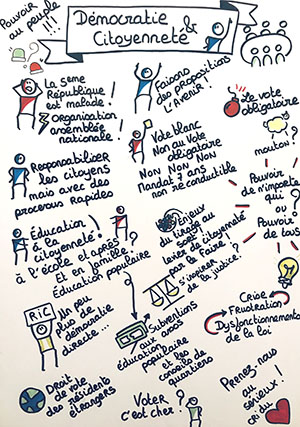 Pouvoir
au peuple
!!!
Démocratie
&
Citoyenneté
La 5eme
République !
est malade !
Organisation
assemblée
nationale !
Faisons
des propositions
d'Avenir !
Le vote
obligatoire
mouton ?
Responsabiliser
les citoyens
mais avec des
processus rapides
Vote blanc
Non au Vote
obligatoire
NON NON NON
Mandat 7 ans
non reconductible
Pouvoir
de n'importe
qui ?
ou
Pouvoir
de Tous
Éducation !
à la
citoyenneté !
à l'école et après
Et en famille !
Éducation populaire
Enjeux
du tirage au
sort !
levier de citoyenneté
pas le faire ?
s'inspirer
de la justice !
RIC
Un peu
plus de
démocratie
directe...
Subventions
aux assos
éducation
populaire
et les
conseils de
quartiers
Crise
Frustration
Dysfonctionnements
de la loi
Droit
de vote
des résidents
étrangers
Voter
c'est cher ?
Prenez-nous
au
sérieux !
cri du